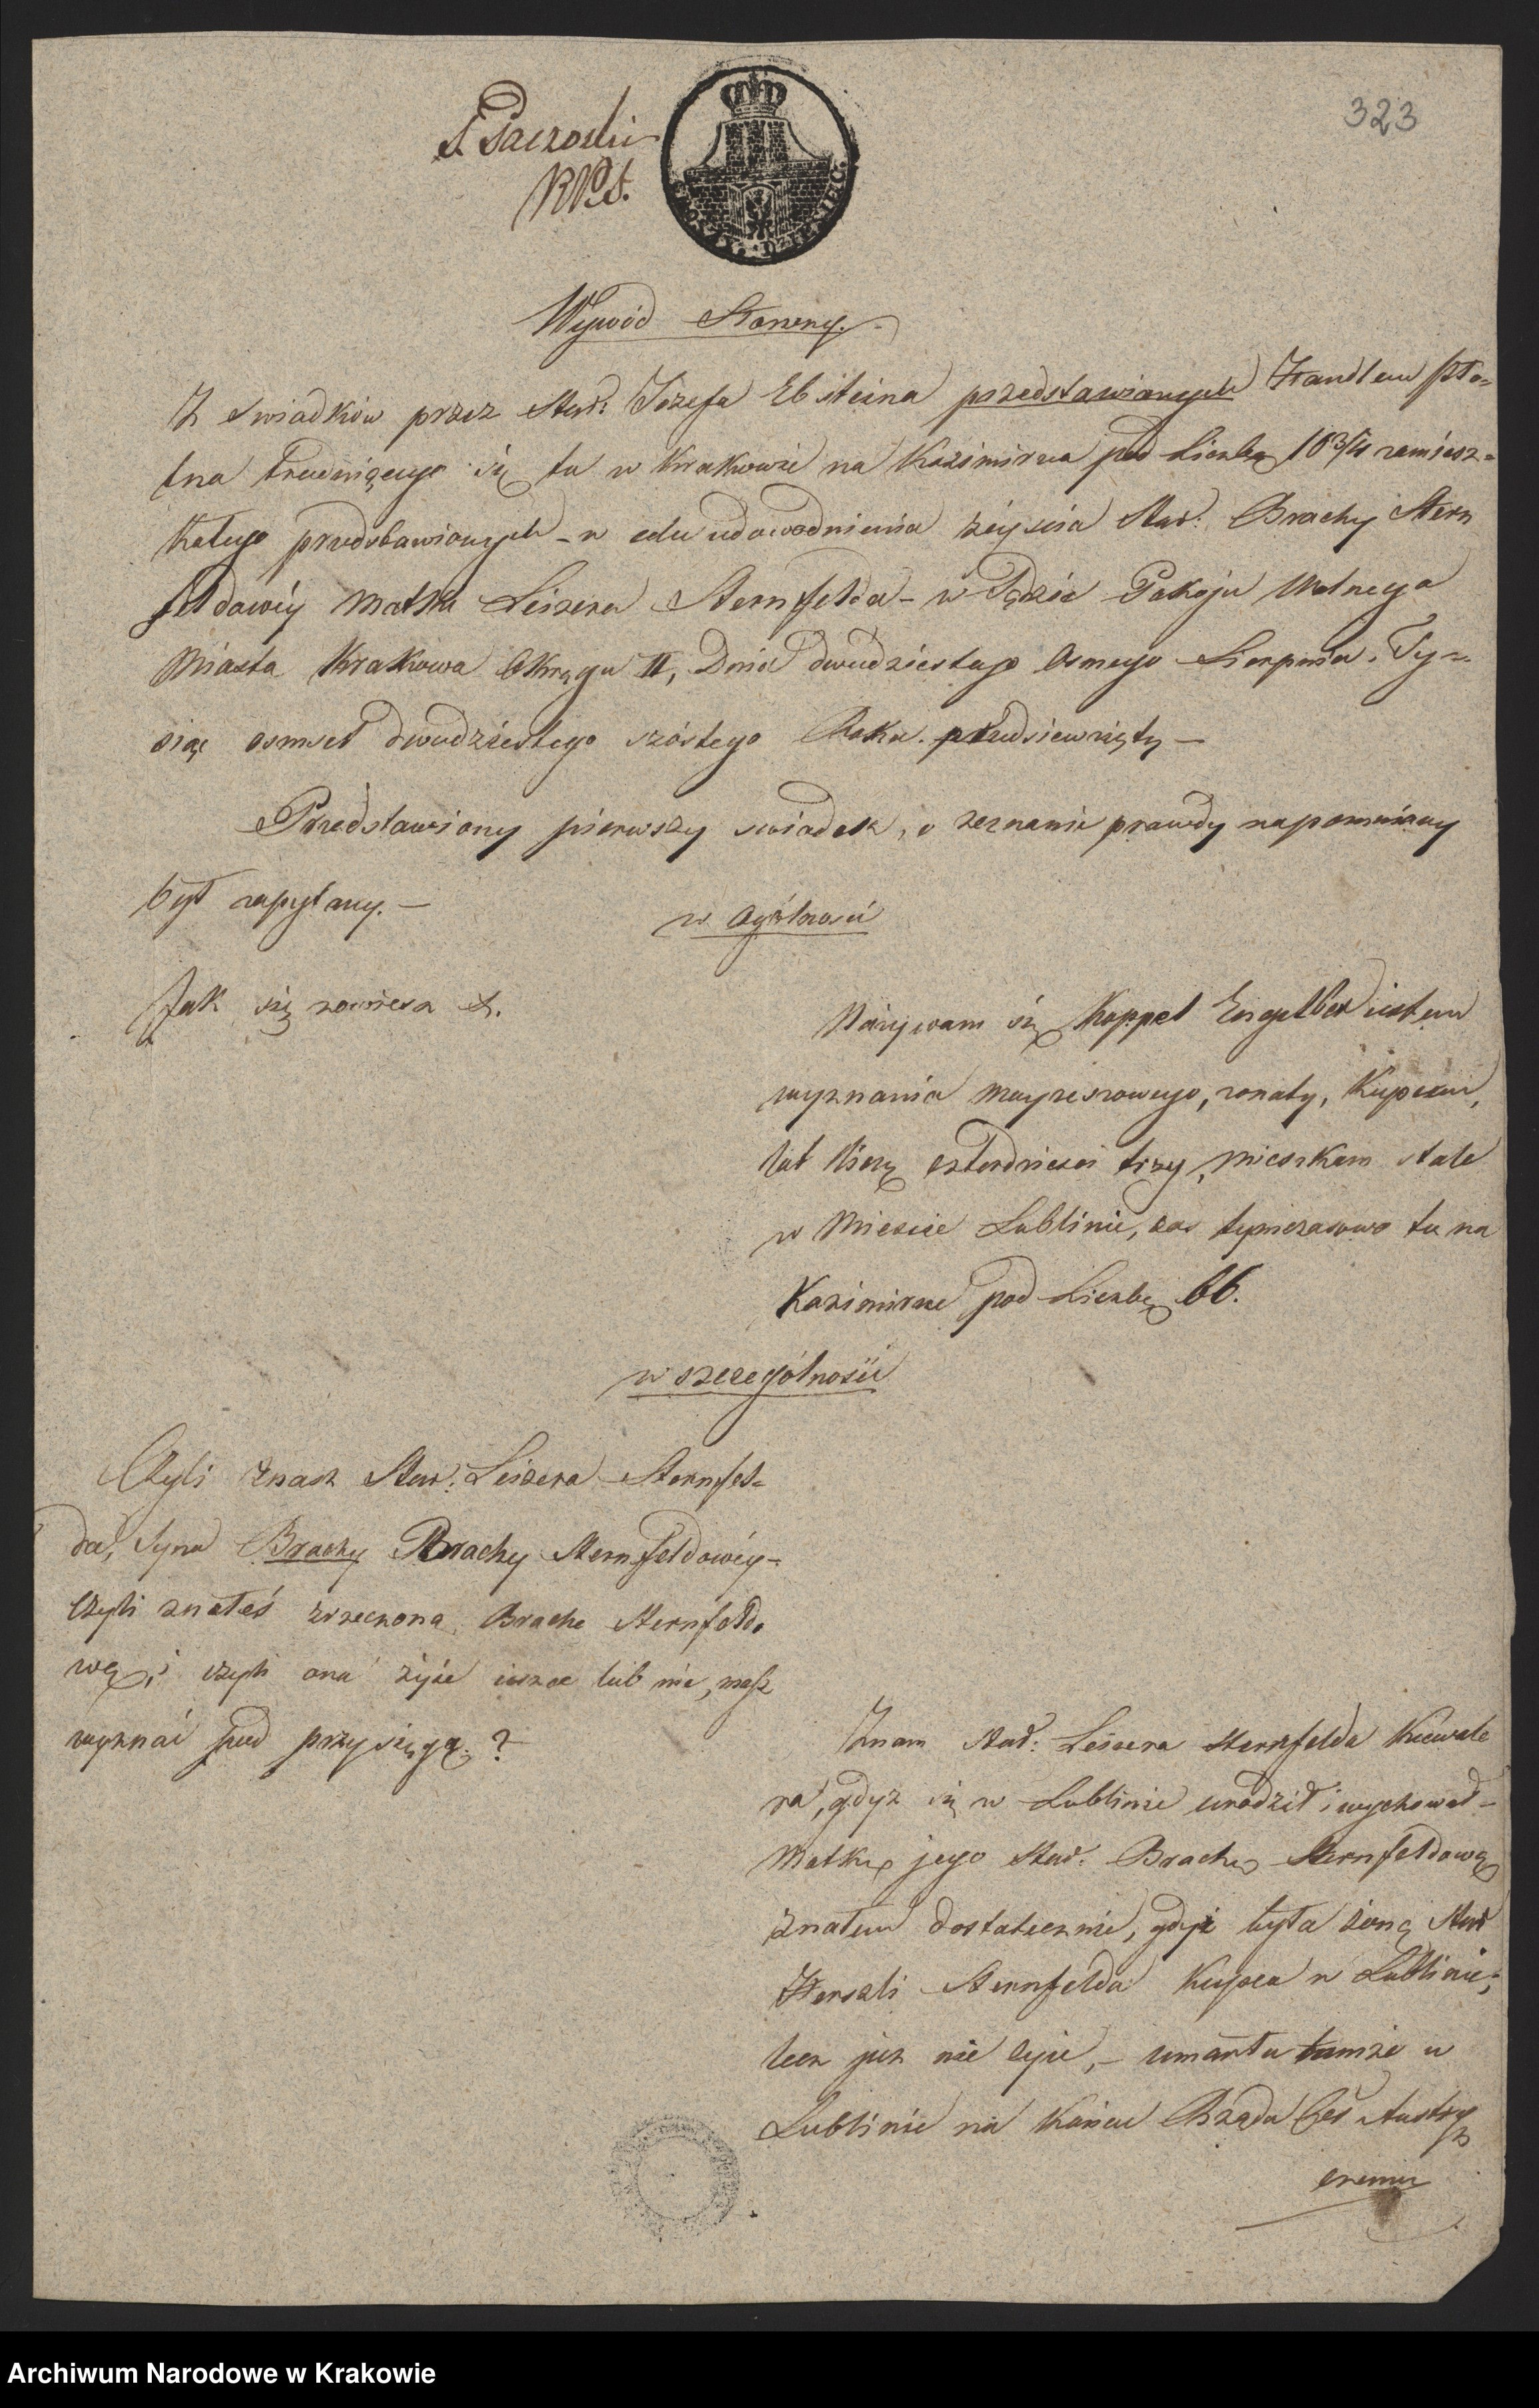 323
Wywód Słowny.
Z Swiadków przez Star: Józefa Ebsteina przedstawionych Handlem płó=
tna trudniącego się tu w Krakowie na Kazimirzu pod Liczbą 103/4 zamiesz=
kałego przedstawionych – w celu udowodnienia zeyscia Star: Brachy Stern
feldowéy Matki Leizera Sternfelda – w Sądzie Pokoju Wolnego
Miasta Krakowa Okręgu II, Dnia dwudziestego Osmego Sierpnia, Ty=
siąc osmset dwudziestego szóstego Roku. przedsiewzięty —
Przedstawiony pierwszy swiadek, o zeznanie prawdy napomniany
był zapytany. —
w Ogólności
Jak się nazwiesz &.
Nazywam się Koppel Engelber iestem
wyznania Moyżeszowego, żonaty, Kupcem,
lat liczę czterdzieści trzy, mieszkam stale
w Mieście Lublinie, zaś tymczasowo tu na
Kazimirzu pod Liczbą 66.
w szczególności
Czyli znasz Star: Leizera Sternfel=
da, Syna Brachy Brachy Sternfeldowéy –
Czyli znałeś rzeczoną Brache Sternfeldo
wą, i czyli ona żyie ieszcze lub nie, masz
wyznać pod przysięgą. ?
Znam Star: Leizera Sternfelda Kawale
ra, gdyż się w Lublinie urodził i wychował –
Matkę jego Star. Brachę Sternfeldową
znałem dostatecznie, gdyż była żoną Star
Herszli Sternfelda Kupca w Lublinie,
lecz już nie żyie, – umarła tamże w
Lublinie na Końcu Rządu Ces Austry